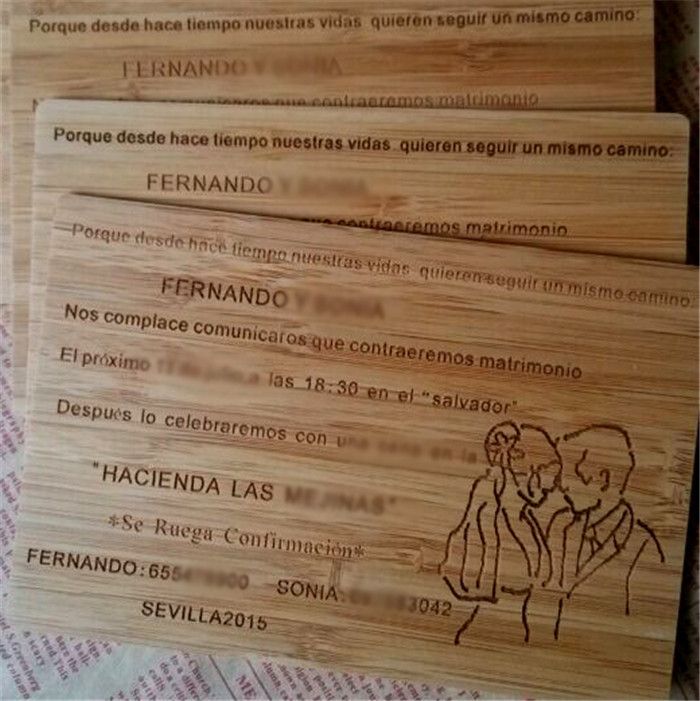 Porque desde hace tiempo nuestras vidas quieren seguir un mismo camino:
FERNANDO Y SONIA
contraeremos matrimonio
Porque desde hace tiempo nuestras vidas quieren seguir un mismo camino:
FERNANDO Y SONIA
contraeremos matrimonio
Porque desde hace tiempo nuestras vidas quieren seguir un mismo camino:
FERNANDO Y SONIA
Nos complace comunicaros que contraeremos matrimonio
El próximo las 18:30 en el "salvador"
Después lo celebraremos con
"HACIENDA LAS
*Se Ruega Confirmación*
FERNANDO:655 SONIA: 3042
SEVILLA2015